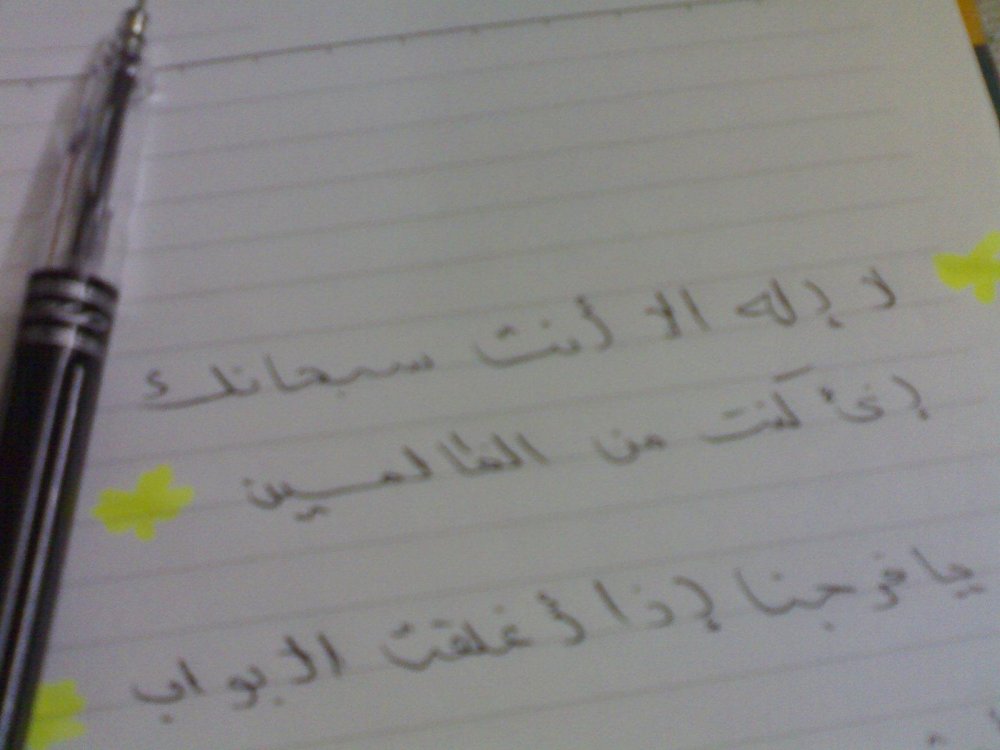 لا إله الا أنت سبحانك
إني كنت من الظالمين
يا فرجنا إذا أغلقت الابواب